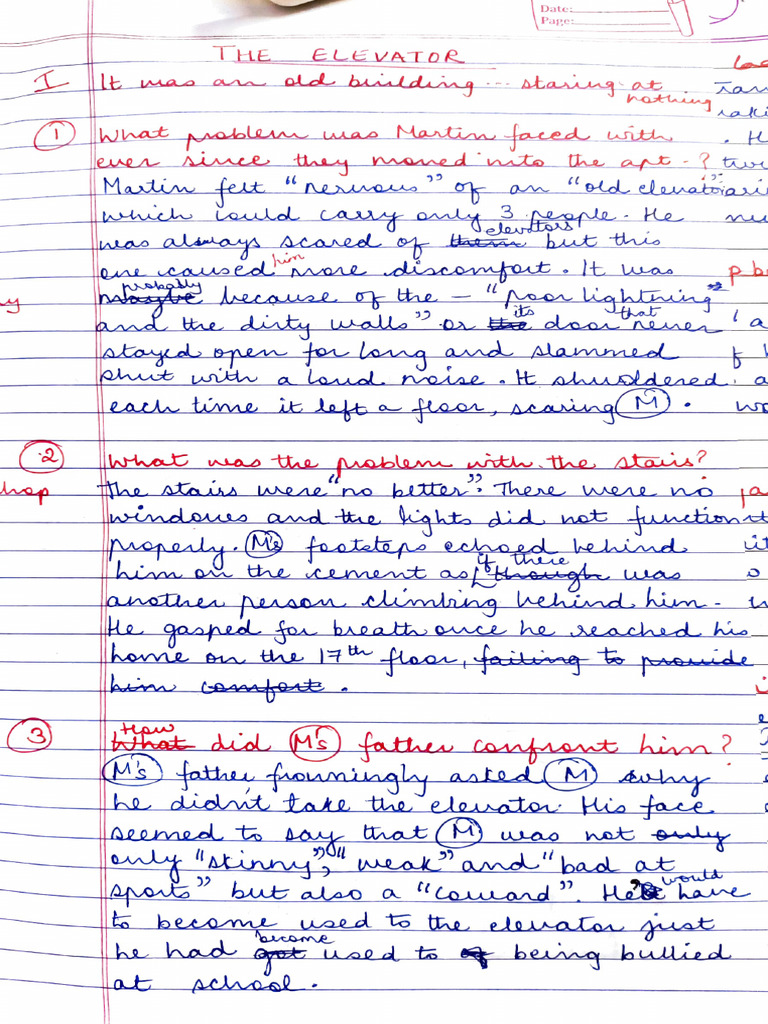 Date:
Page:
THE ELEVATOR
I It was an old building ... staring at nothing
① What problem was Martin faced with
ever since they moved into the apt -?
Martin felt "nervous" of an "old elevator"
which could carry only 3 people. He
was always scared of them elevators but this
one caused him more discomfort. It was
maybe probably because of the – "poor lightning"
and the dirty walls" or the its door that never
stayed open for long and slammed
shut with a loud noise. It shuddered
each time it left a floor, scaring M.
② What was the problem with the stairs?
The stairs were "no better". There were no
windows and the lights did not function
properly. M's footsteps echoed behind
him on the cement as though if there was
another person climbing behind him.
He gasped for breath once he reached his
home on the 17th floor, failing to provide
him comfort.
③ What How did M's father confront him?
M's father frowningly asked M why
he didn't take the elevator. His face
seemed to say that M was not only
only "skinny", "weak" and "bad at
sports" but also a "coward". He would have
to become used to the elevator just
he had got become used to of being bullied
at school.